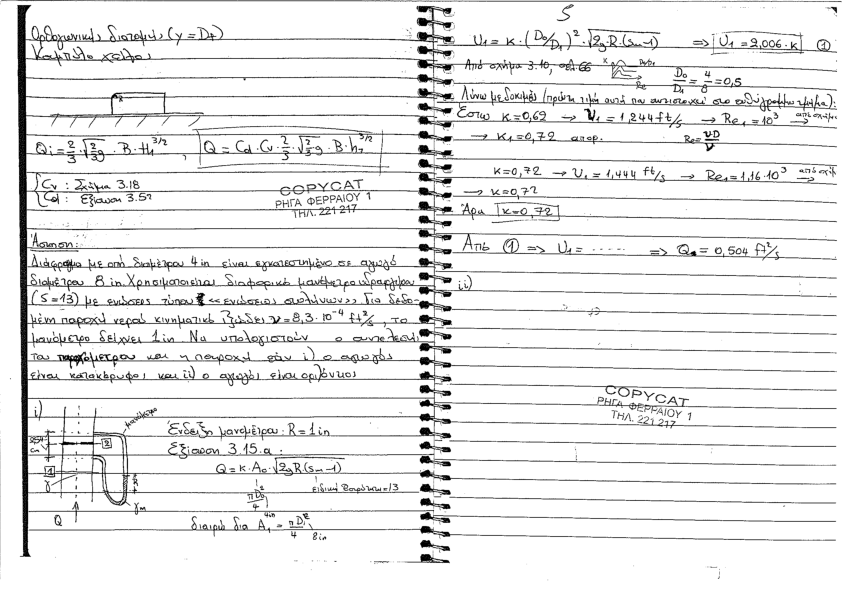 Ορθογωνικής διατομής (y = D+)
Καμπύλο χείλος
Qi = 2/3 · √(2/3 g) · B · H1^3/2 , Q = Cd · Cv · 2/3 · √(2/3 g) · B · h1^3/2
Cv : Σχήμα 3.18
Cd : Εξίσωση 3.5?
COPYCAT
ΡΗΓΑ ΦΕΡΡΑΙΟΥ 1
ΤΗΛ. 221 217
Άσκηση:
Διάφραγμα με οπή διαμέτρου 4 in είναι εγκατεστημένο σε αγωγό
διαμέτρου 8 in. Χρησιμοποιείται διαφορικό μανόμετρο υδραργύρου
(S=13) με ενώσεις τύπου «ενώσεις σωλήνων». Για δεδο-
μένη παροχή νερού κινηματικό ιξώδες ν = 8,3 · 10^-4 ft²/s, το
μανόμετρο δείχνει 1 in. Να υπολογιστούν ο συντελεστής
του παροχόμετρου και η παροχή εάν i) ο αγωγός
είναι κατακόρυφος και ii) ο αγωγός είναι οριζόντιος
i)
μανόμετρο
2
1
R
γ
γм
Q
Ένδειξη μανομέτρου: R = 1 in
Εξίσωση 3.15.α :
Q = κ · A0 · √2gR(Sm-1)
πD0²/4
4in
ειδική βαρύτητα = 13
διαιρώ δια A1 = πD1²/4
8in
5
U1 = κ · (D0/D1)² · √2gR · (Sm-1) => U1 = 2,006 · κ ①
Από σχήμα 3.10, σελ. 66
κ
D0/D1
Re
D0/D1 = 4/8 = 0,5
Λύνω με δοκιμές (πρώτη τιμή αυτή που αντιστοιχεί στο ευθύγραμμο τμήμα):
Έστω κ = 0,62 → U1 = 1,244 ft/s → Re1 = 10³ από σχήμα →
→ κ1 = 0,72 απορ. Re = UD/ν
κ = 0,72 → U1 = 1,444 ft/s → Re1 = 1,16 · 10³ από σχήμ →
→ κ = 0,72
Άρα κ = 0,72
Από ① => U1 = ..... => Q = 0,504 ft²/s
ii)
COPYCAT
ΡΗΓΑ ΦΕΡΡΑΙΟΥ 1
ΤΗΛ. 221 217